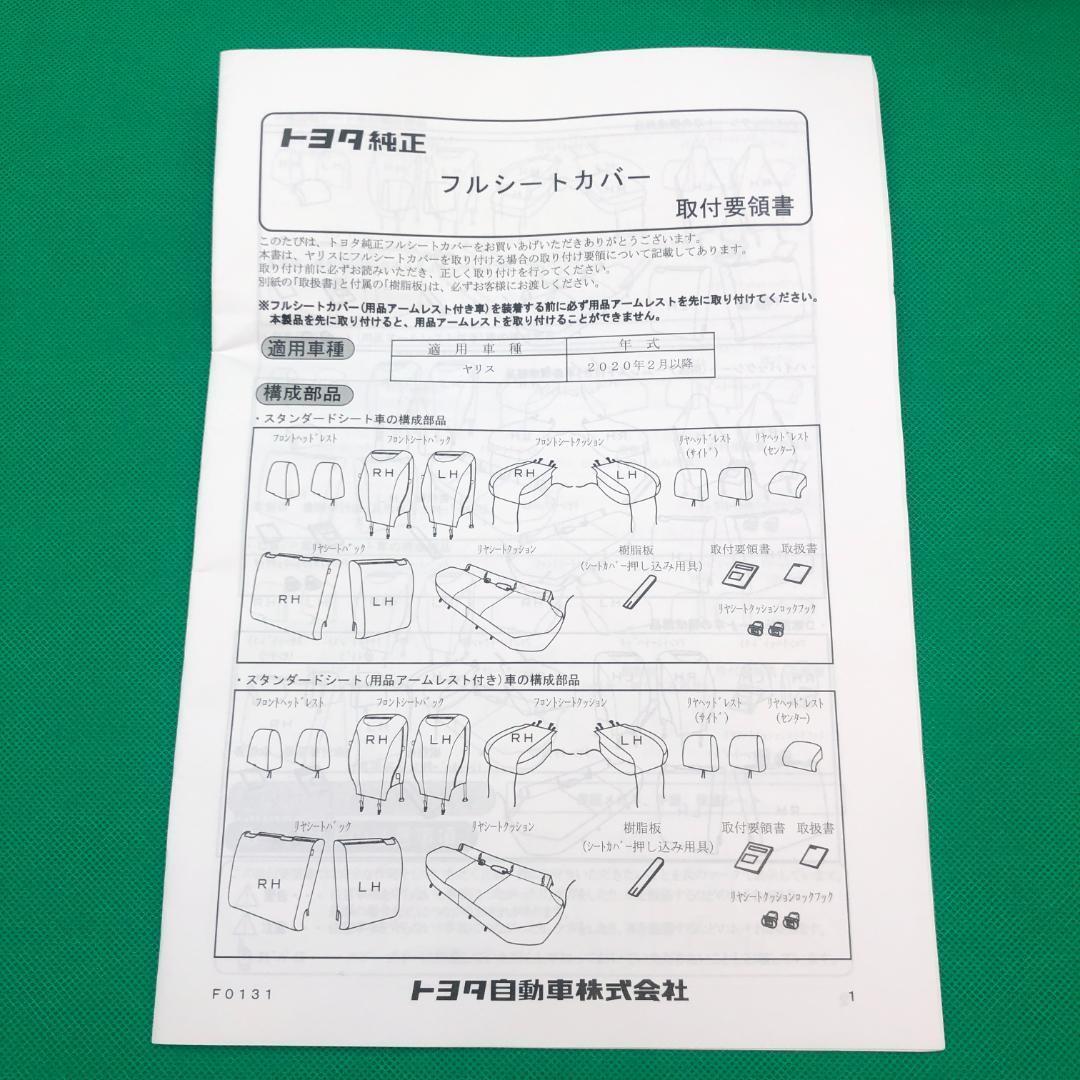 トヨタ純正
フルシートカバー
取付要領書
このたびは、トヨタ純正フルシートカバーをお買いあげいただきありがとうございます。
本書は、ヤリスにフルシートカバーを取り付ける場合の取り付け要領について記載してあります。
取り付け前に必ずお読みいただき、正しく取り付けを行ってください。
別紙の「取扱書」と付属の「樹脂板」は、必ずお客様にお渡しください。
※フルシートカバー(用品アームレスト付き車)を装着する前に必ず用品アームレストを先に取り付けてください。
本製品を先に取り付けると、用品アームレストを取り付けることができません。
適用車種
適用車種 年式
ヤリス 2020年2月以降
構成部品
・スタンダードシート車の構成部品
ﾌﾛﾝﾄﾍｯﾄﾞﾚｽﾄ ﾌﾛﾝﾄｼｰﾄﾊﾞｯｸ ﾌﾛﾝﾄｼｰﾄｸｯｼｮﾝ ﾘﾔﾍｯﾄﾞﾚｽﾄ ﾘﾔﾍｯﾄﾞﾚｽﾄ
(ｻｲﾄﾞ) (ｾﾝﾀｰ)
RH LH RH LH
ﾘﾔｼｰﾄﾊﾞｯｸ ﾘﾔｼｰﾄｸｯｼｮﾝ 樹脂板 取付要領書 取扱書
(ｼｰﾄｶﾊﾞｰ押し込み用具)
RH LH
ﾘﾔｼｰﾄｸｯｼｮﾝﾛｯｸﾌｯｸ
・スタンダードシート(用品アームレスト付き)車の構成部品
ﾌﾛﾝﾄﾍｯﾄﾞﾚｽﾄ ﾌﾛﾝﾄｼｰﾄﾊﾞｯｸ ﾌﾛﾝﾄｼｰﾄｸｯｼｮﾝ ﾘﾔﾍｯﾄﾞﾚｽﾄ ﾘﾔﾍｯﾄﾞﾚｽﾄ
(ｻｲﾄﾞ) (ｾﾝﾀｰ)
RH LH RH LH
ﾘﾔｼｰﾄﾊﾞｯｸ ﾘﾔｼｰﾄｸｯｼｮﾝ 樹脂板 取付要領書 取扱書
(ｼｰﾄｶﾊﾞｰ押し込み用具)
RH LH
ﾘﾔｼｰﾄｸｯｼｮﾝﾛｯｸﾌｯｸ
F0131 トヨタ自動車株式会社 1